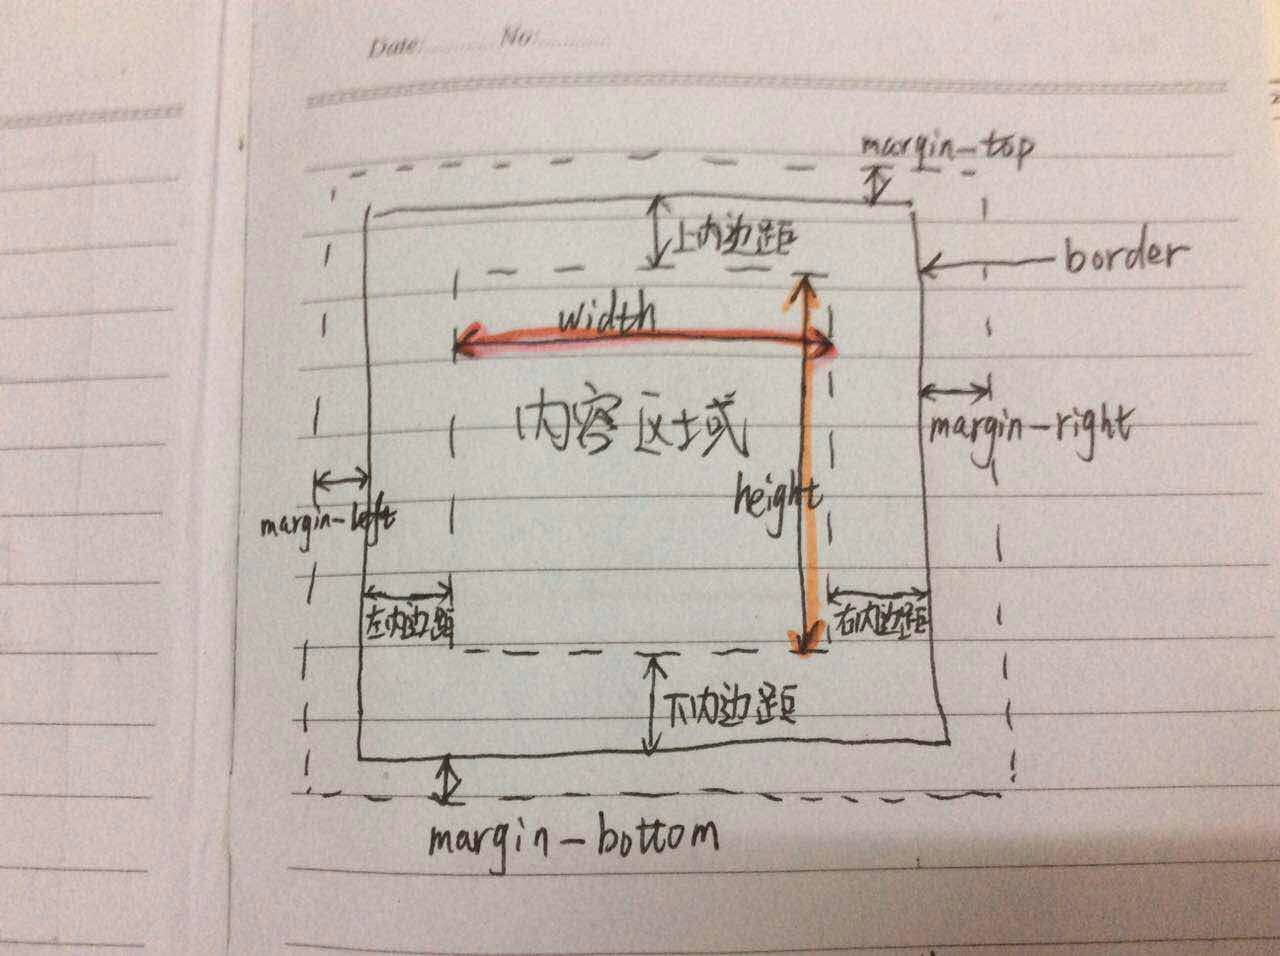 Date: No:
margin-top
上内边距
border
width
内容区域
margin-right
height
margin-left
左内边距
右内边距
下内边距
margin-bottom